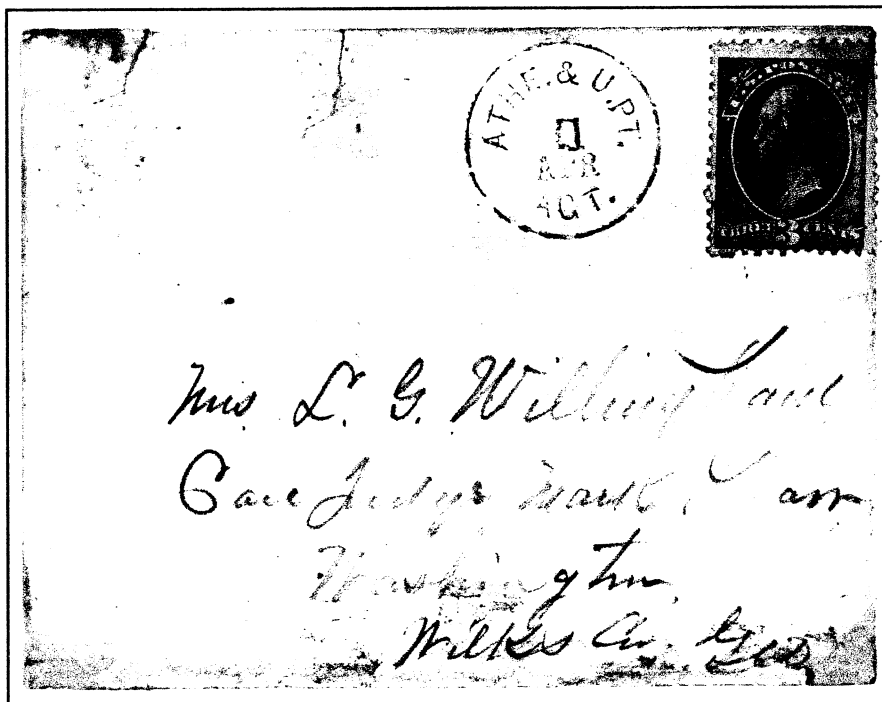 ATHE. & U.PT.
APR
AGT.
THREE 3 CENTS
Mrs L. G. Willingham
Care Judge Mark
Washington
Wilkes Co.